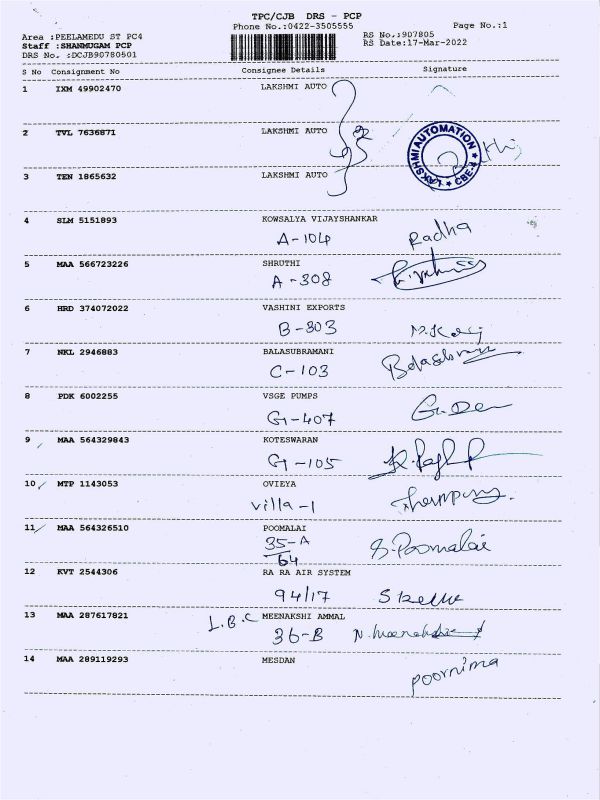 TPC/CJB DRS - PCP
Phone No.:0422-3505555
Page No.:1
Area :PEELAMEDU ST PC4
RS No.:907805
Staff :SHANMUGAM PCP
RS Date:17-Mar-2022
DRS No. :DCJB90780501
S No Consignment No Consignee Details Signature
1 IXM 49902470 LAKSHMI AUTO
2 TVL 7636871 LAKSHMI AUTO
LAKSHMI AUTOMATION * CBE-4 *
3 TEN 1865632 LAKSHMI AUTO
4 SLM 5151893 KOWSALYA VIJAYSHANKAR
A-104 Radha
5 MAA 566723226 SHRUTHI
A-308
6 HRD 374072022 VASHINI EXPORTS
B-303
7 NKL 2946883 BALASUBRAMANI
C-103
8 PDK 6002255 VSGE PUMPS
G-407
9 MAA 564329843 KOTESWARAN
G-105
10 MTP 1143053 OVIEYA
villa-1
11 MAA 564326510 POOMALAI
35-A S.Poomalai
64
12 KVT 2544306 RA RA AIR SYSTEM
94/17
13 MAA 287617821 L.B.C MEENAKSHI AMMAL
36-B
14 MAA 289119293 MESDAN
poornima